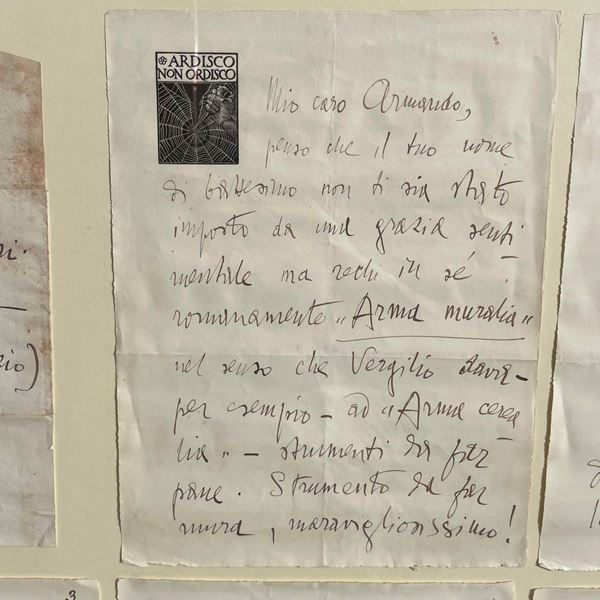 ARDISCO
NON ORDISCO
Mio caro Armando,
penso che il tuo nome
di battesimo non ti sia stato
imposto da una grazia senti
mentale ma rechi in sé -
romanamente "Arma muralia"
nel senso che Vergilio dava -
per esempio - ad "Arma cerea
lia" - strumenti da far
pane. Strumento da far
mura, maravigliosissimo!
3